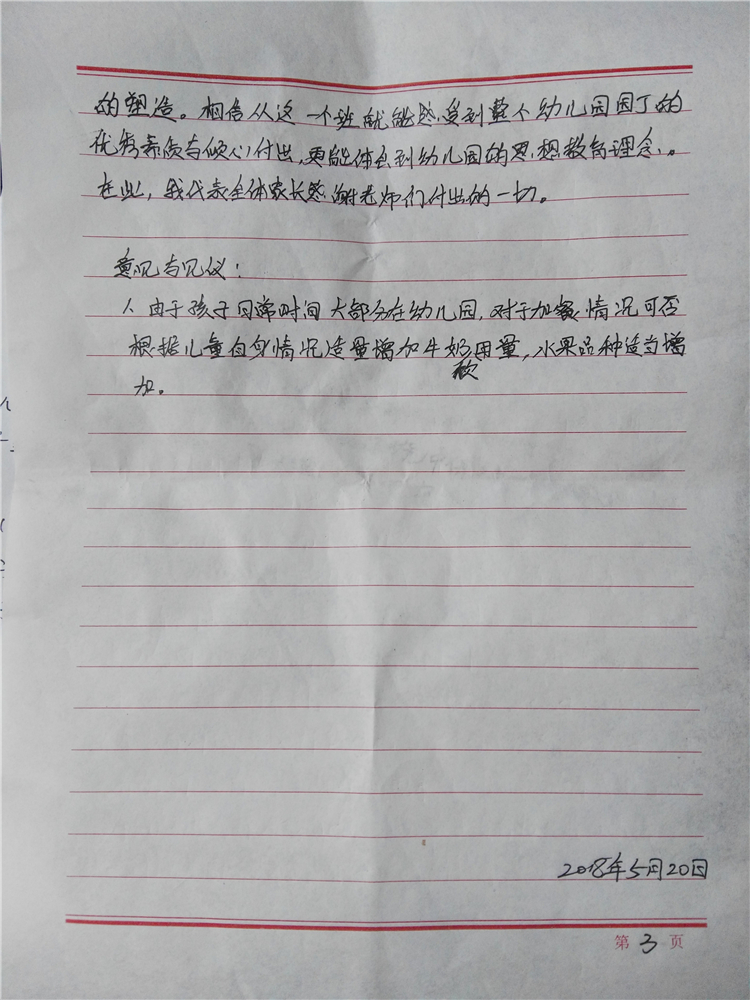 的塑造。相信从这一个班就能感受到整个幼儿园园丁的
优秀素质与倾心付出,更能体会到幼儿园的思想教育理念。
在此,我代表全体家长感谢老师们付出的一切。
意见与见仪:
1. 由于孩子日常时间大部分在幼儿园,对于加餐情况可否
根据儿童自身情况适量增加牛奶用量,水果品种适当增
加。
2018年5月20日
第 3 页